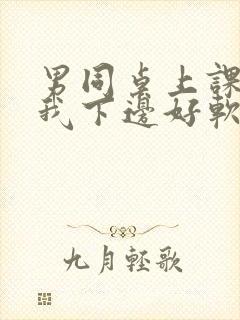 男同桌上課
我下邊好軟
九月輕歌